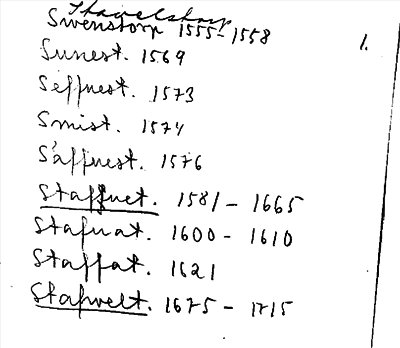 Swenstorp 1555-1558
1.
Sunest. 1569
Seffnest. 1573
Smist. 1574
Säffnest. 1576
Staffnet. 1581 - 1665
Stafnat. 1600 - 1610
Staffat. 1621
Stafwelt. 1675 - 1715